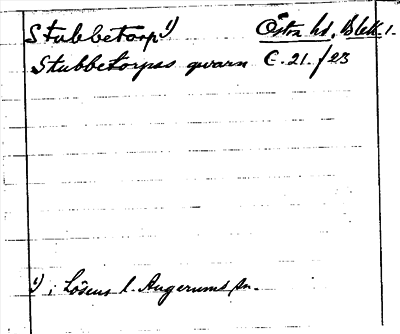 Stubbetorp 1) Östra hd, Blek l.
Stubbetorpas qwarn C. 21. /23
1) i Lösens l. Augerums sn.